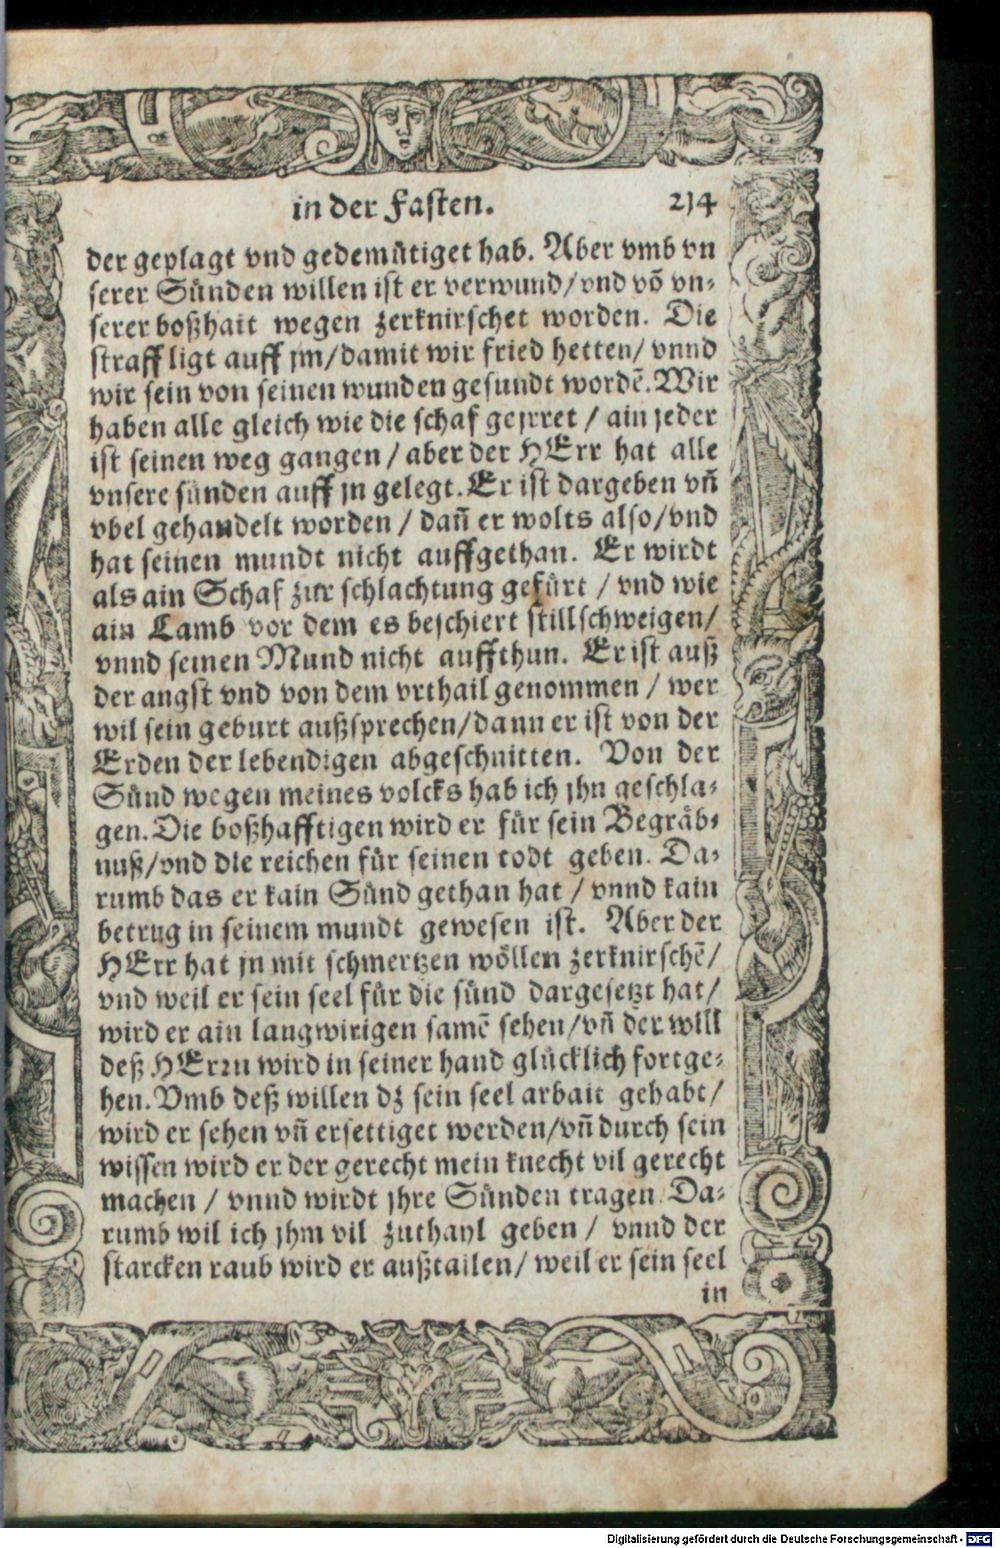 in der Fasten. 214
der geplagt vnd gedemütiget hab. Aber vmb vn
serer Sünden willen ist er verwund/vnd võ vn-
serer boßhait wegen zerknirschet worden. Die
straff ligt auff jm/damit wir fried hetten/ vnnd
wir sein von seinen wunden gesundt wordẽ. Wir
haben alle gleich wie die schaf gejrret / ain jeder
ist seinen weg gangen / aber der HErr hat alle
vnsere sünden auff jn gelegt. Er ist dargeben vñ
vbel gehandelt worden / dañ er wolts also/vnd
hat seinen mundt nicht auffgethan. Er wirdt
als ain Schaf zur schlachtung gefürt / vnd wie
ain Lamb vor dem es beschiert stillschweigen/
vnnd seinen Mund nicht auffthun. Er ist auß
der angst vnd von dem vrthail genommen / wer
wil sein geburt außsprechen/dann er ist von der
Erden der lebendigen abgeschnitten. Von der
Sünd wegen meines volcks hab ich jhn geschla-
gen. Die boßhafftigen wird er für sein Begräb-
nuß/vnd die reichen für seinen todt geben. Da-
rumb das er kain Sünd gethan hat / vnnd kain
betrug in seinem mundt gewesen ist. Aber der
HErr hat jn mit schmertzen wöllen zerknirschẽ/
vnd weil er sein seel für die sünd dargesetzt hat/
wird er ain langwirigen samẽ sehen/vñ der will
deß HErrn wird in seiner hand glücklich fortge-
hen. Vmb deß willen dz sein seel arbait gehabt/
wird er sehen vñ ersettiget werden/vñ durch sein
wissen wird er der gerecht mein knecht vil gerecht
machen / vnnd wirdt jhre Sünden tragen. Da-
rumb wil ich jhm vil zuthayl geben / vnnd der
starcken raub wird er außtailen/ weil er sein seel
in
Digitalisierung gefördert durch die Deutsche Forschungsgemeinschaft - DFG